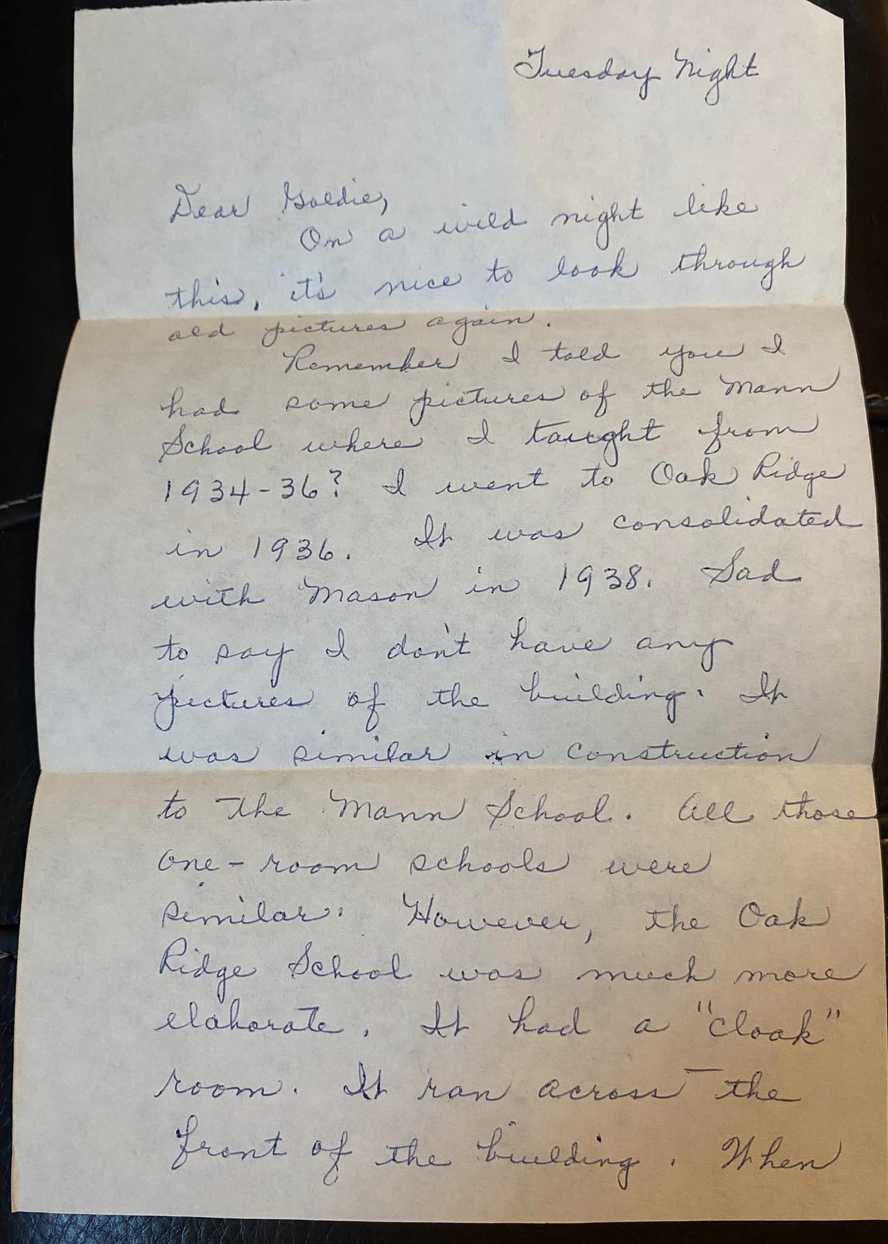 Tuesday Night
Dear Goldie,
On a wild night like
this, it's nice to look through
old pictures again.
Remember I told you I
had some pictures of the Mann
School where I taught from
1934-36? I went to Oak Ridge
in 1936. It was consolidated
with Mason in 1938. Sad
to say I don't have any
pictures of the building. It
was similar in construction
to the Mann School. All those
one-room schools were
similar. However, the Oak
Ridge School was much more
elaborate. It had a "cloak"
room. It ran across the
front of the building. When